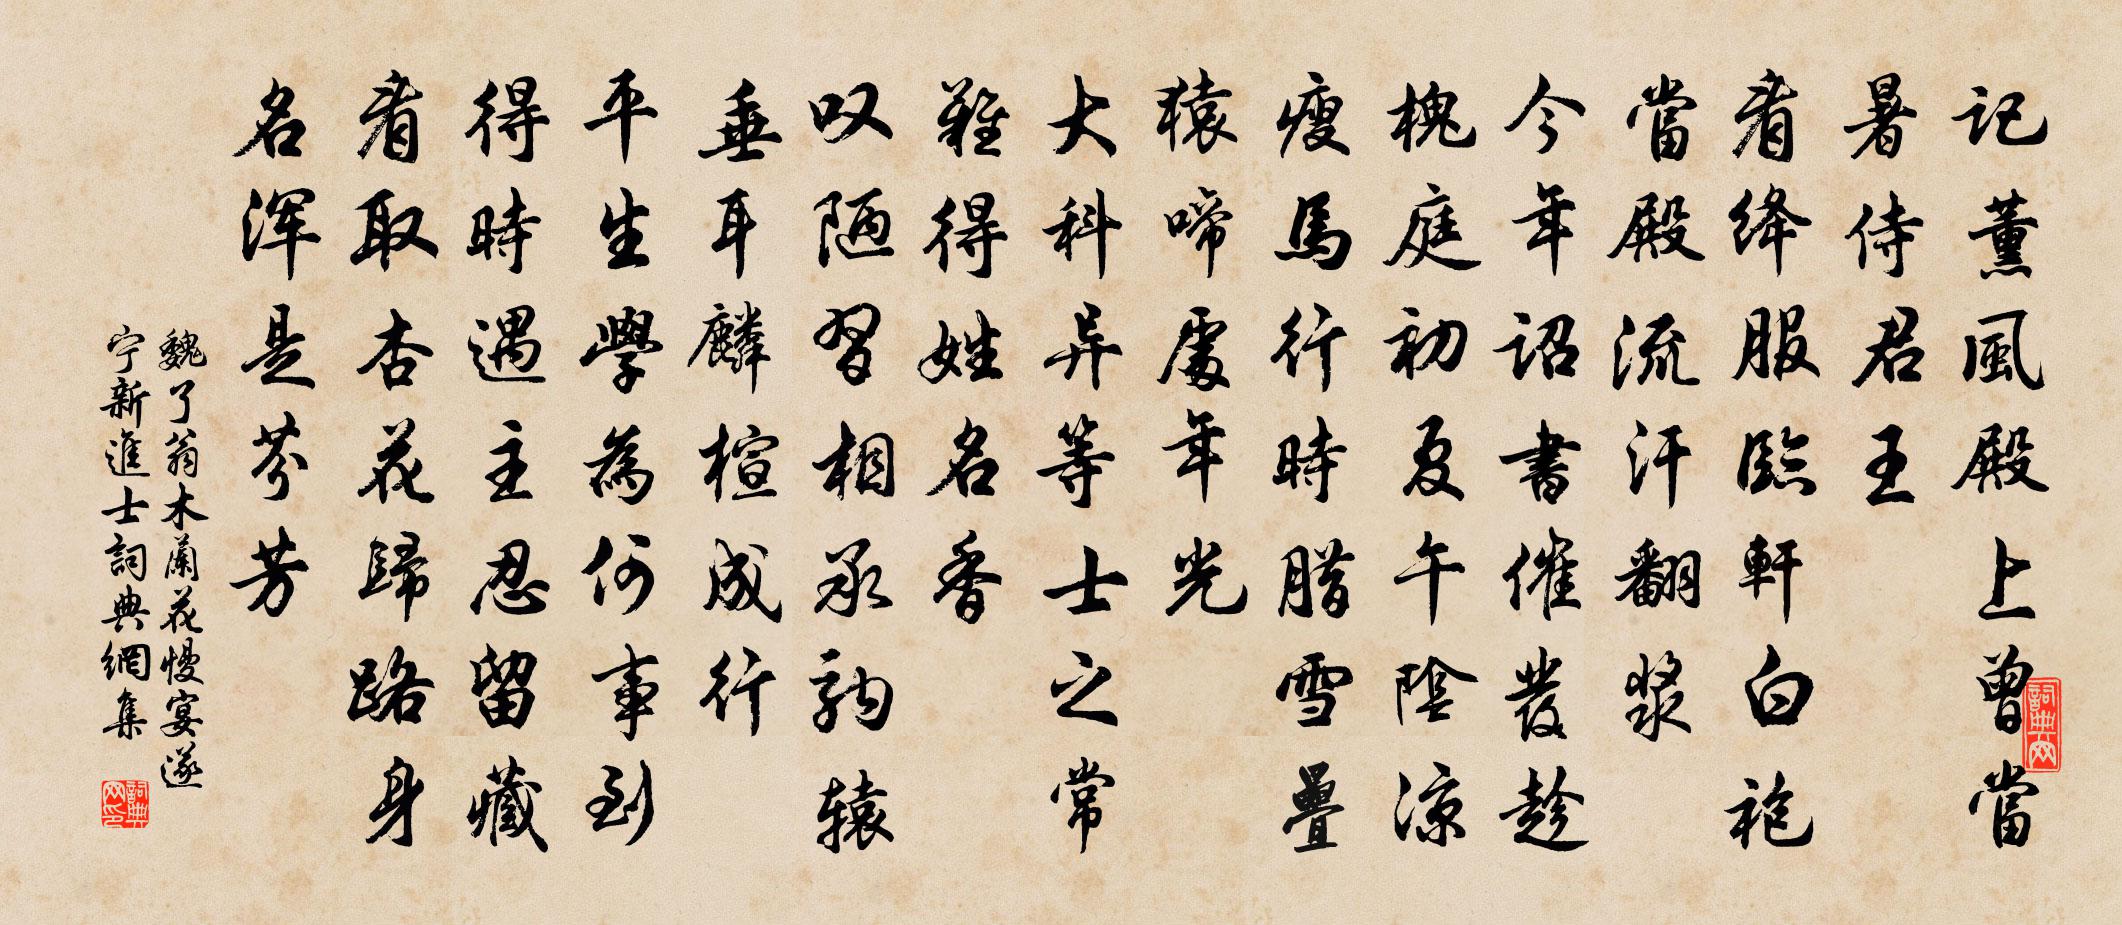 记薰風殿上曾當
暑侍君王
看绛服臨軒白袍
當殿流汗翻漿
今年詔書催發趁
槐庭初夏午陰涼
瘦馬行時腊雪疊
猿啼處年光
大科异等士之常
難得姓名香
叹陋習相承駒辕
垂耳麟楦成行
平生學為何事到
得時遇主忍留藏
看取杏花歸路身
名浑是芬芳
魏了翁木蘭花慢宴遂
宁新進士詞典網集
詞典网
詞典网印